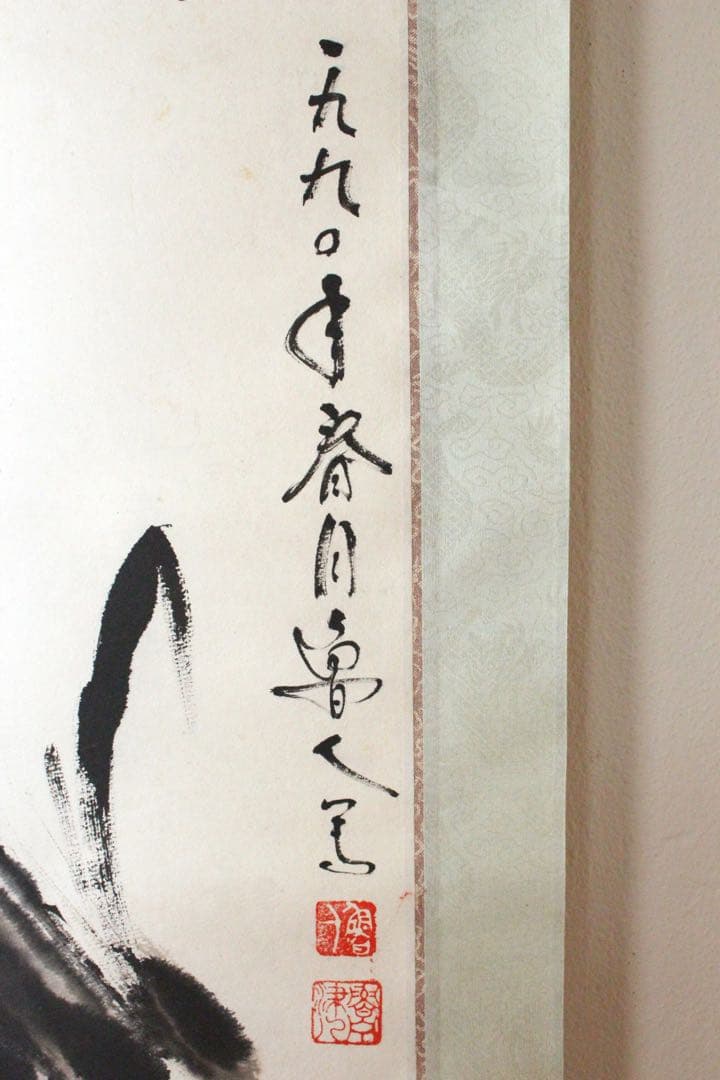 一九九〇年春月魯人写